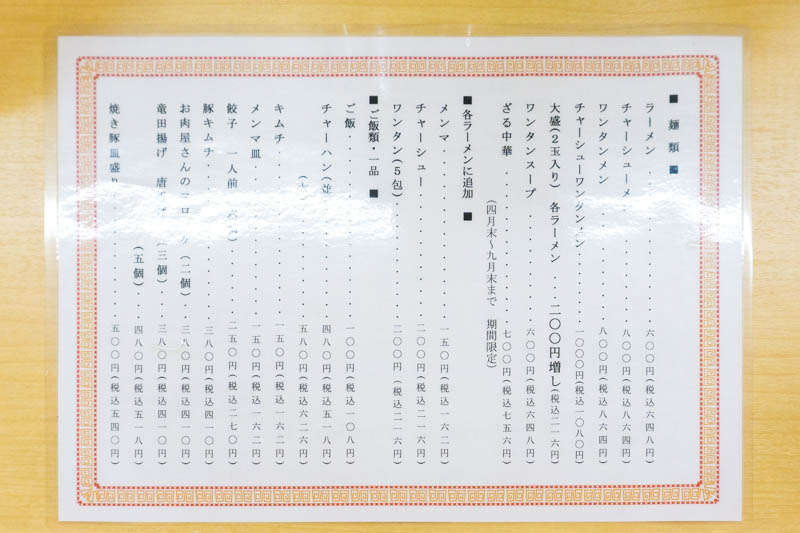 ■ 麺類 ■
ラーメン・・・・・・・・・・・・六〇〇円(税込六四八円)
チャーシューメン・・・・・・・・八〇〇円(税込八六四円)
ワンタンメン・・・・・・・・・・八〇〇円(税込八六四円)
チャーシューワンタンメン・・・・一〇〇〇円(税込一〇八〇円)
大盛(2玉入り) 各ラーメン・・・二〇〇円増し(税込二一六円)
ワンタンスープ・・・・・・・・・六〇〇円(税込六四八円)
ざる中華・・・・・・・・・・・・七〇〇円(税込七五六円)
(四月末〜九月末まで 期間限定)
■ 各ラーメンに追加 ■
メンマ・・・・・・・・・・・・・一五〇円(税込一六二円)
チャーシュー・・・・・・・・・・二〇〇円(税込二一六円)
ワンタン(5包)・・・・・・・・・二〇〇円(税込二一六円)
■ ご飯類・一品 ■
ご飯・・・・・・・・・・・・・・一〇〇円(税込一〇八円)
チャーハン・・・・・・・・四八〇円(税込五一八円)
・・・・・・・・五八〇円(税込六二六円)
キムチ・・・・・・・・・・・・・一五〇円(税込一六二円)
メンマ皿・・・・・・・・・・・・一五〇円(税込一六二円)
餃子 一人前・・・・・・・・二五〇円(税込二七〇円)
豚キムチ・・・・・・・・・・・・三八〇円(税込四一〇円)
お肉屋さんのコロッケ(二個)・・・三八〇円(税込四一〇円)
竜田揚げ 唐揚げ(三個)・・・三八〇円(税込四一〇円)
(五個)・・・四八〇円(税込五一八円)
焼き豚皿盛り・・・・・・・・・・五〇〇円(税込五四〇円)